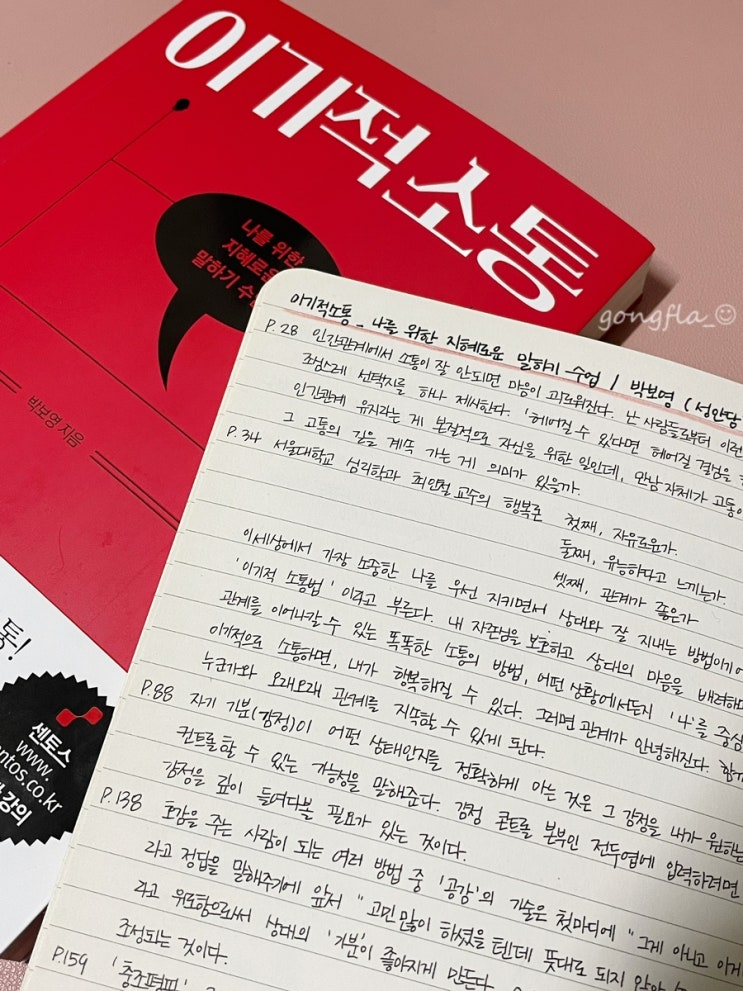 이기적소통
나를 위한
지혜로운
말하기 수
박보영 지음
통!
센토스
www.
ntos.co.kr
강의
gongfla_☺
이기적소통 _ 나를 위한 지혜로운 말하기 수업 / 박보영 (성안당
P.28 인간관계에서 소통이 잘 안되면 마음이 괴로워진다. 난 사람들로부터 이런
조심스레 선택지를 하나 제시한다. '헤어질 수 있다면 헤어질 결심을
인간관계 유지라는 게 본질적으로 자신을 위한 일인데, 만남 자체가 고통이
그 고통의 길을 계속 가는 게 의미가 있을까.
P.34 서울대학교 심리학과 최인철 교수의 행복론 첫째, 자유로운가.
둘째, 유능하다고 느끼는가.
셋째, 관계가 좋은가
이세상에서 가장 소중한 나를 우선 지키면서 상대와 잘 지내는 방법이기에
'이기적 소통법' 이라고 부른다. 내 자존심을 보호하고 상대의 마음을 배려하며
관계를 이어나갈 수 있는 똑똑한 소통의 방법, 어떤 상황에서든지 '나'를 중심
이기적으로 소통하면, 내가 행복해질 수 있다. 그러면 관계가 안녕해진다. 함께
누군가와 오래오래 관계를 지속할 수 있게 된다.
P.88 자기 기분(감정)이 어떤 상태인지를 정확하게 아는 것은 그 감정을 내가 원하는
컨트롤할 수 있는 가능성을 말해준다. 감정 콘트롤 본부인 전두엽에 입력하려면
감정을 깊이 들여다볼 필요가 있는 것이다.
P.138 호감을 주는 사람이 되는 여러 방법 중 '공감'의 기술은 첫마디에 "그게 아니고 이게
라고 정답을 말해주기에 앞서 "고민 많이 하셨을 텐데 뜻대로 되지 않아
라고 위로함으로써 상대의 '기분'이 좋아지게 만든다.
조성되는 것이다.
P.159 '충조평판'